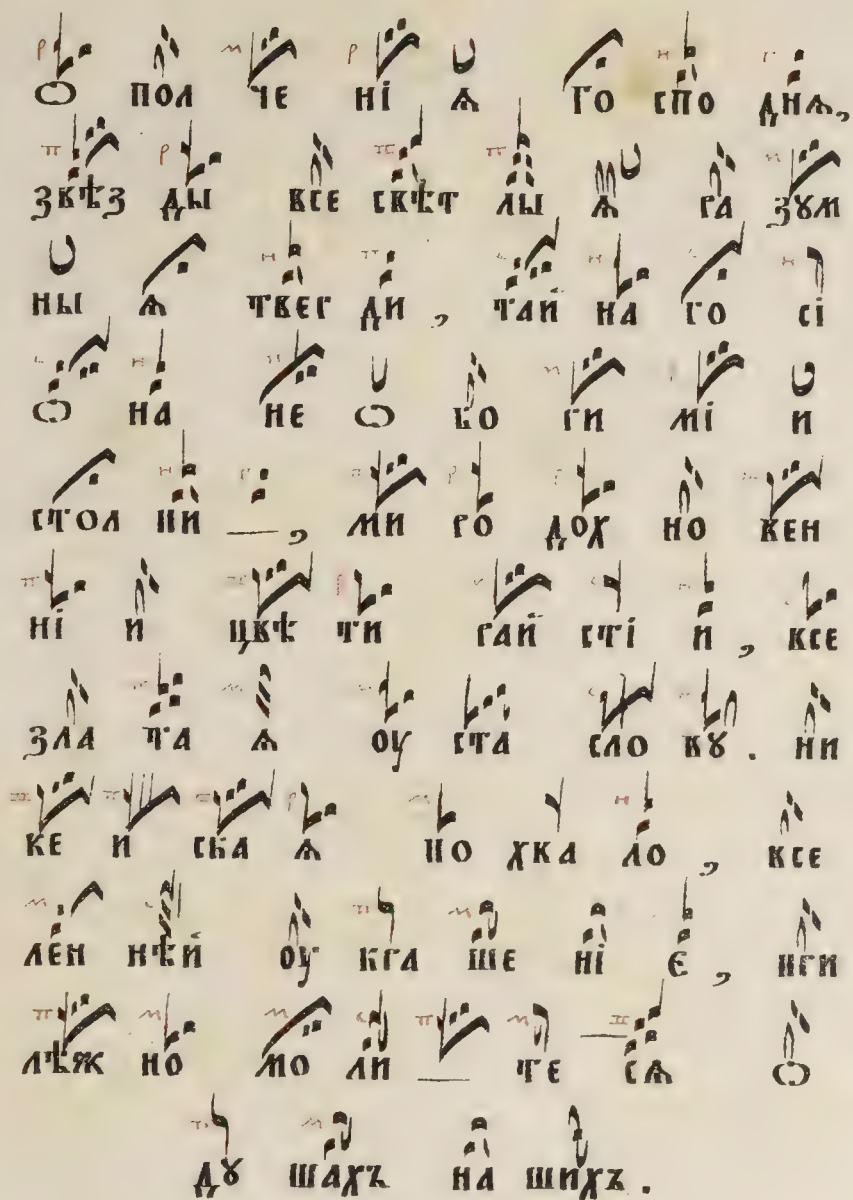 Ѡ пол че ні ѧ го спо днѧ,
звѣз ды все свѣт лы ѧ ра зꙋм
ны ѧ твер ди , тай на го сі
ѡ на не ѡ бо ри мі и
стол пи — , ми ро дох но вен
ні и цвѣ ти рай сті и , все
зла та ѧ оу ста сло вꙋ . ни
ке и ска ѧ по хва ло , все
лен нѣй оу кра ше ні є , при
лѣж но мо ли — те сѧ ѡ
дꙋ шахъ на шихъ .